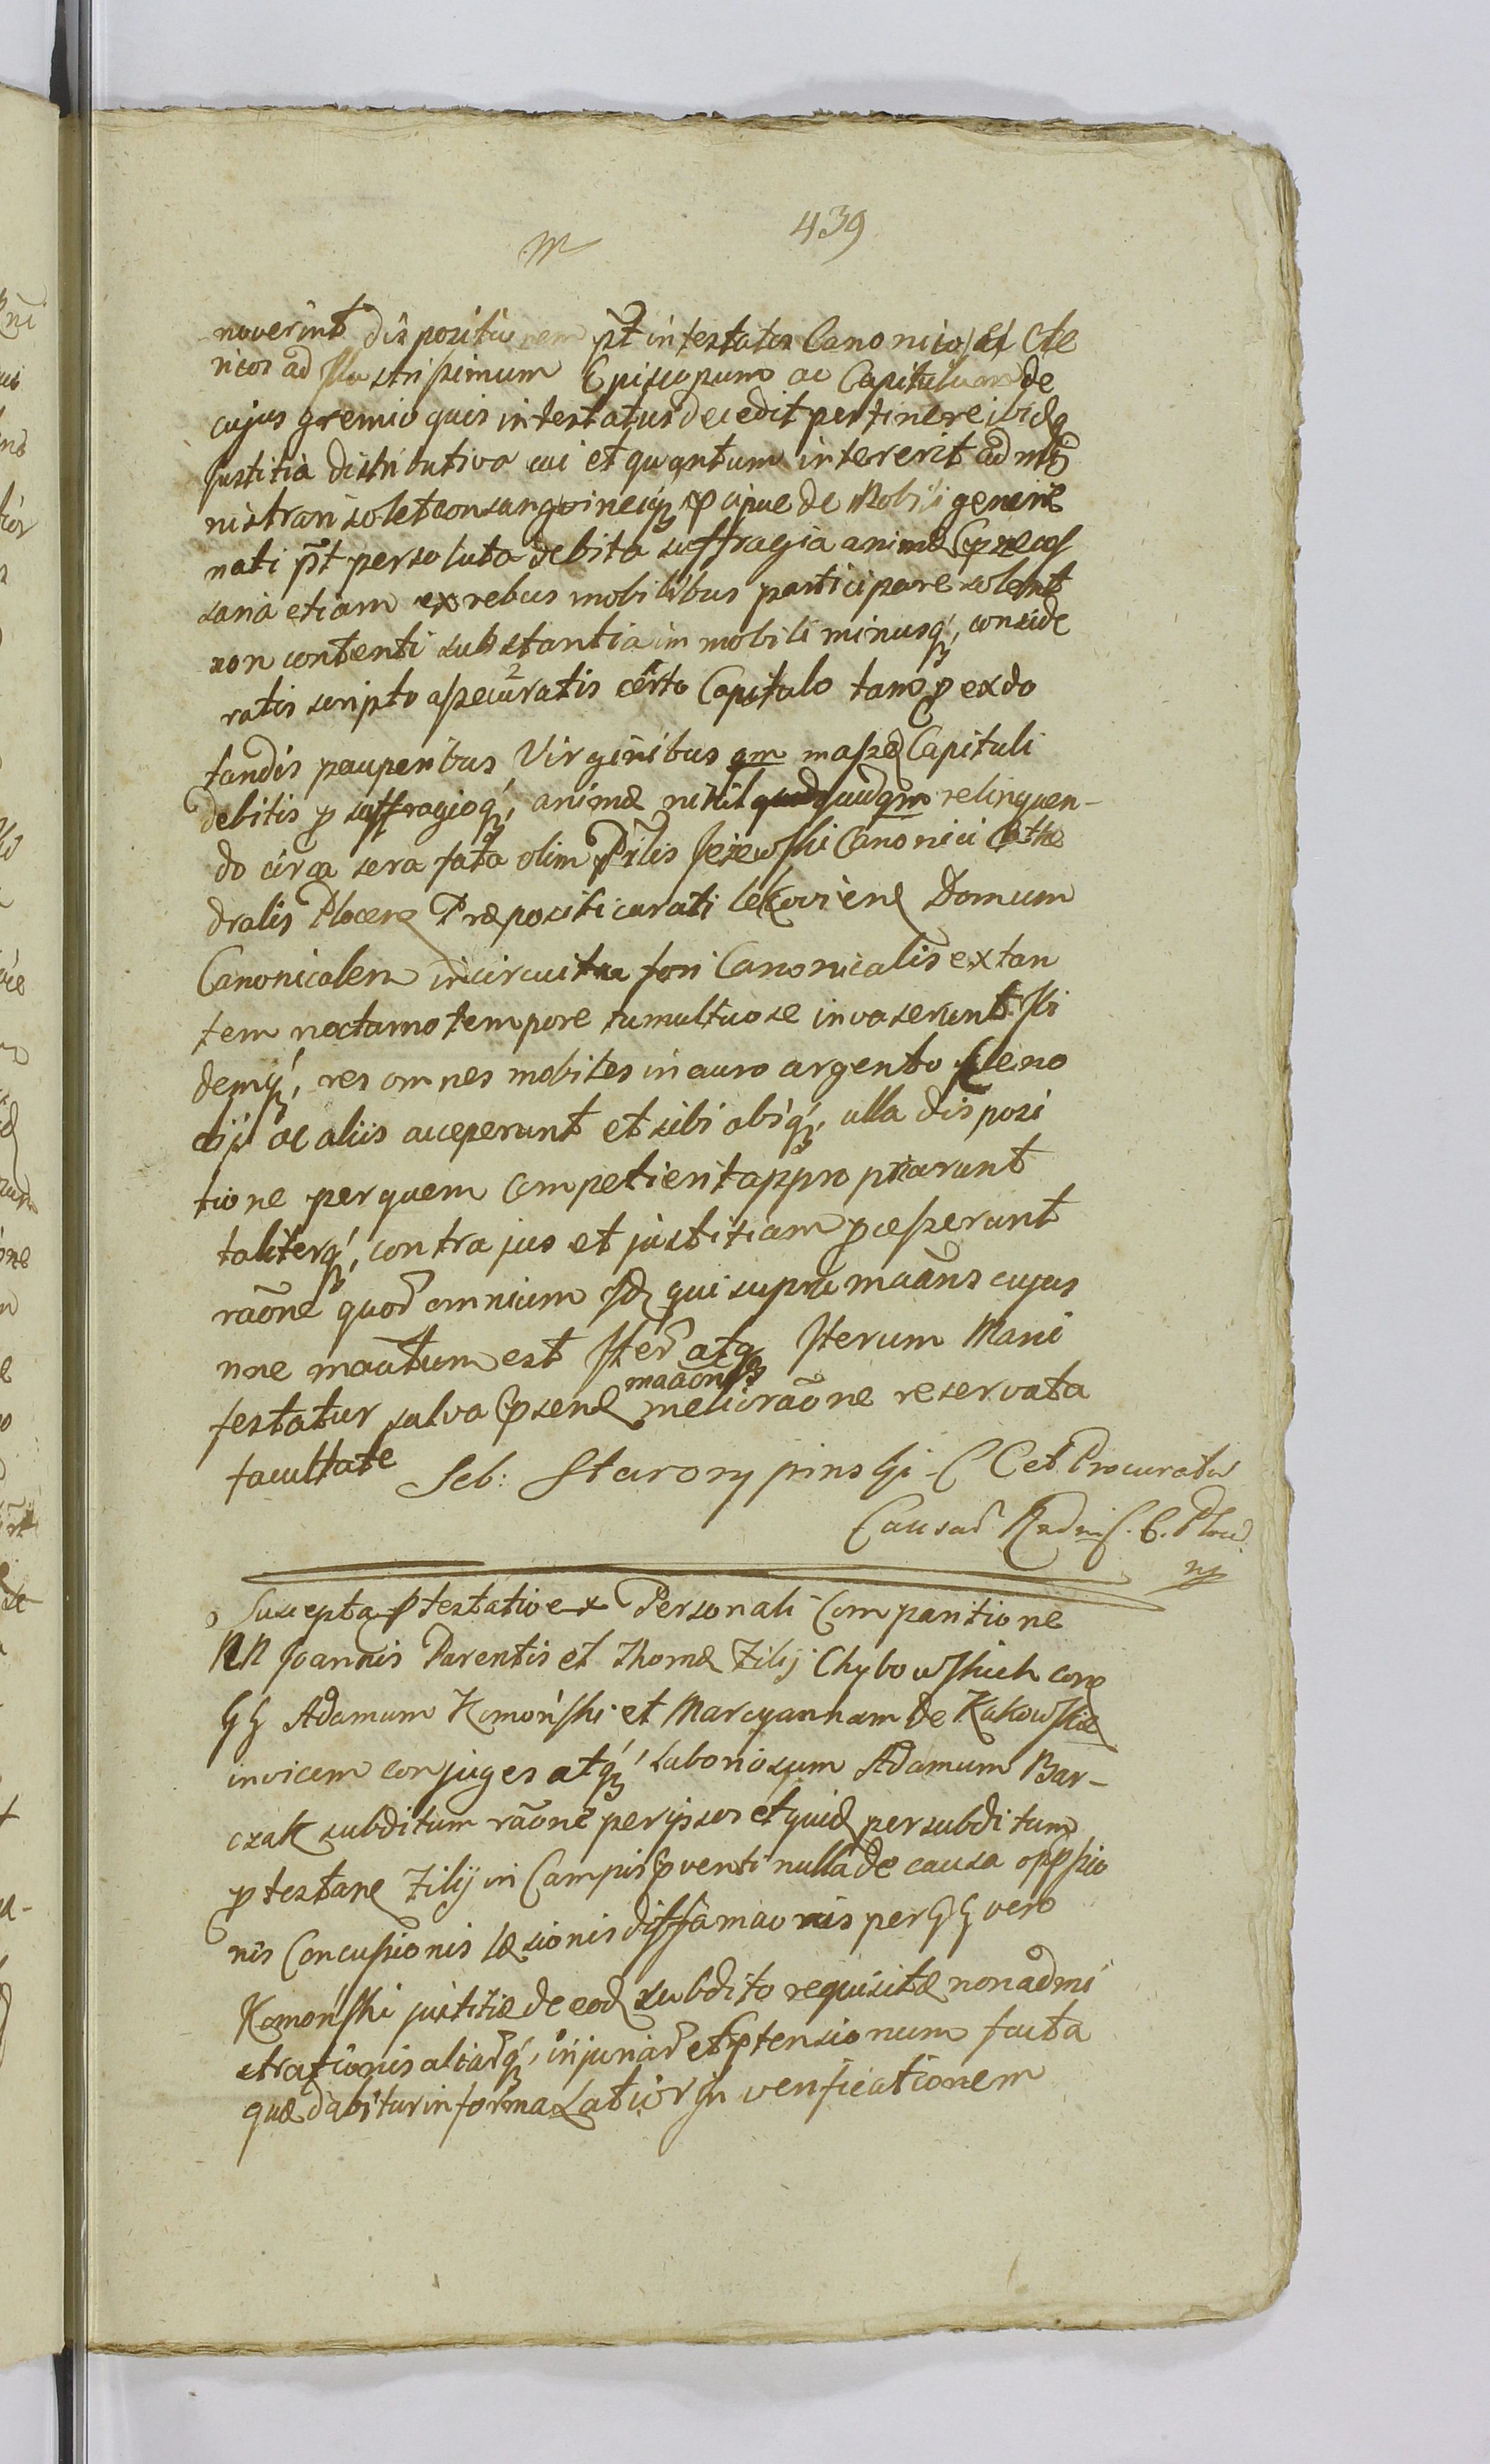 439
noverint dispositionem pt intestatos Canonicos et Cle
ricos ad Illustrissimum Episcopum ac Capitulum de
cujus gremio quis intestatus decedit pertinere ibidq
Justitia distributiva cui et quantum intererit admi
nistrari solet consanguineiq, pcipue de Nobili genere
nati pt persoluta debita suffragia animæ pnecess
saria etiam ex rebus mobilibus participare solent
non contenti substantia immobili minusq, conside
ratis scripto assecuratis certo Capitulo tam p exdo
tandis pauperibus Virginibus qm massæ Capituli
debitis p suffragioq, animæ nihil quidquam relinquen-
do circa sera fata olim Prlis Jeżewski Canonici Cathe
dralis Plocen Præpositi curati Lekovien Domum
Canonicalem in circuitu fori Canonicalis extan
tem nocturno tempore tumultuose invaserunt Ibi
demq, res omnes mobiles in auro argento cleno
dijs ac aliis acceperunt et sibi absq, ulla disposi
tione per quem competierit appropriarunt
taliterq, contra jus et justitiam pcesserunt
raõne quor omnium Id qui supra maãns cujus
nne maãtum est Iter atq Iterum Mani
festatur salva psen maãonis melioraõne reservata
facultate Seb: Staroszypinski C C et Procurator
Causar Rndmi C. Ploc.
mp
Suscepta ptestatio ex Personali Comparitione
NN Joannis Parentis et Thomæ Filij Chybowskich cora
GG Adamum Komoński et Maryannam de Kakowskie
invicem conjuges atq, Laboriosum Adamum Bar-
czak subditum raõne per ipsos et quid per subditum
ptestane Filij in Campis pventi nulla de causa oppssio
nis Concussionis læsionis diffamaonis per GG vero
Komoński justitiæ de eod subdito requisitæ non admi
strationis aliarq, injuriar et ptensionum facta
quæ dabitur in forma Latiori In verificationem